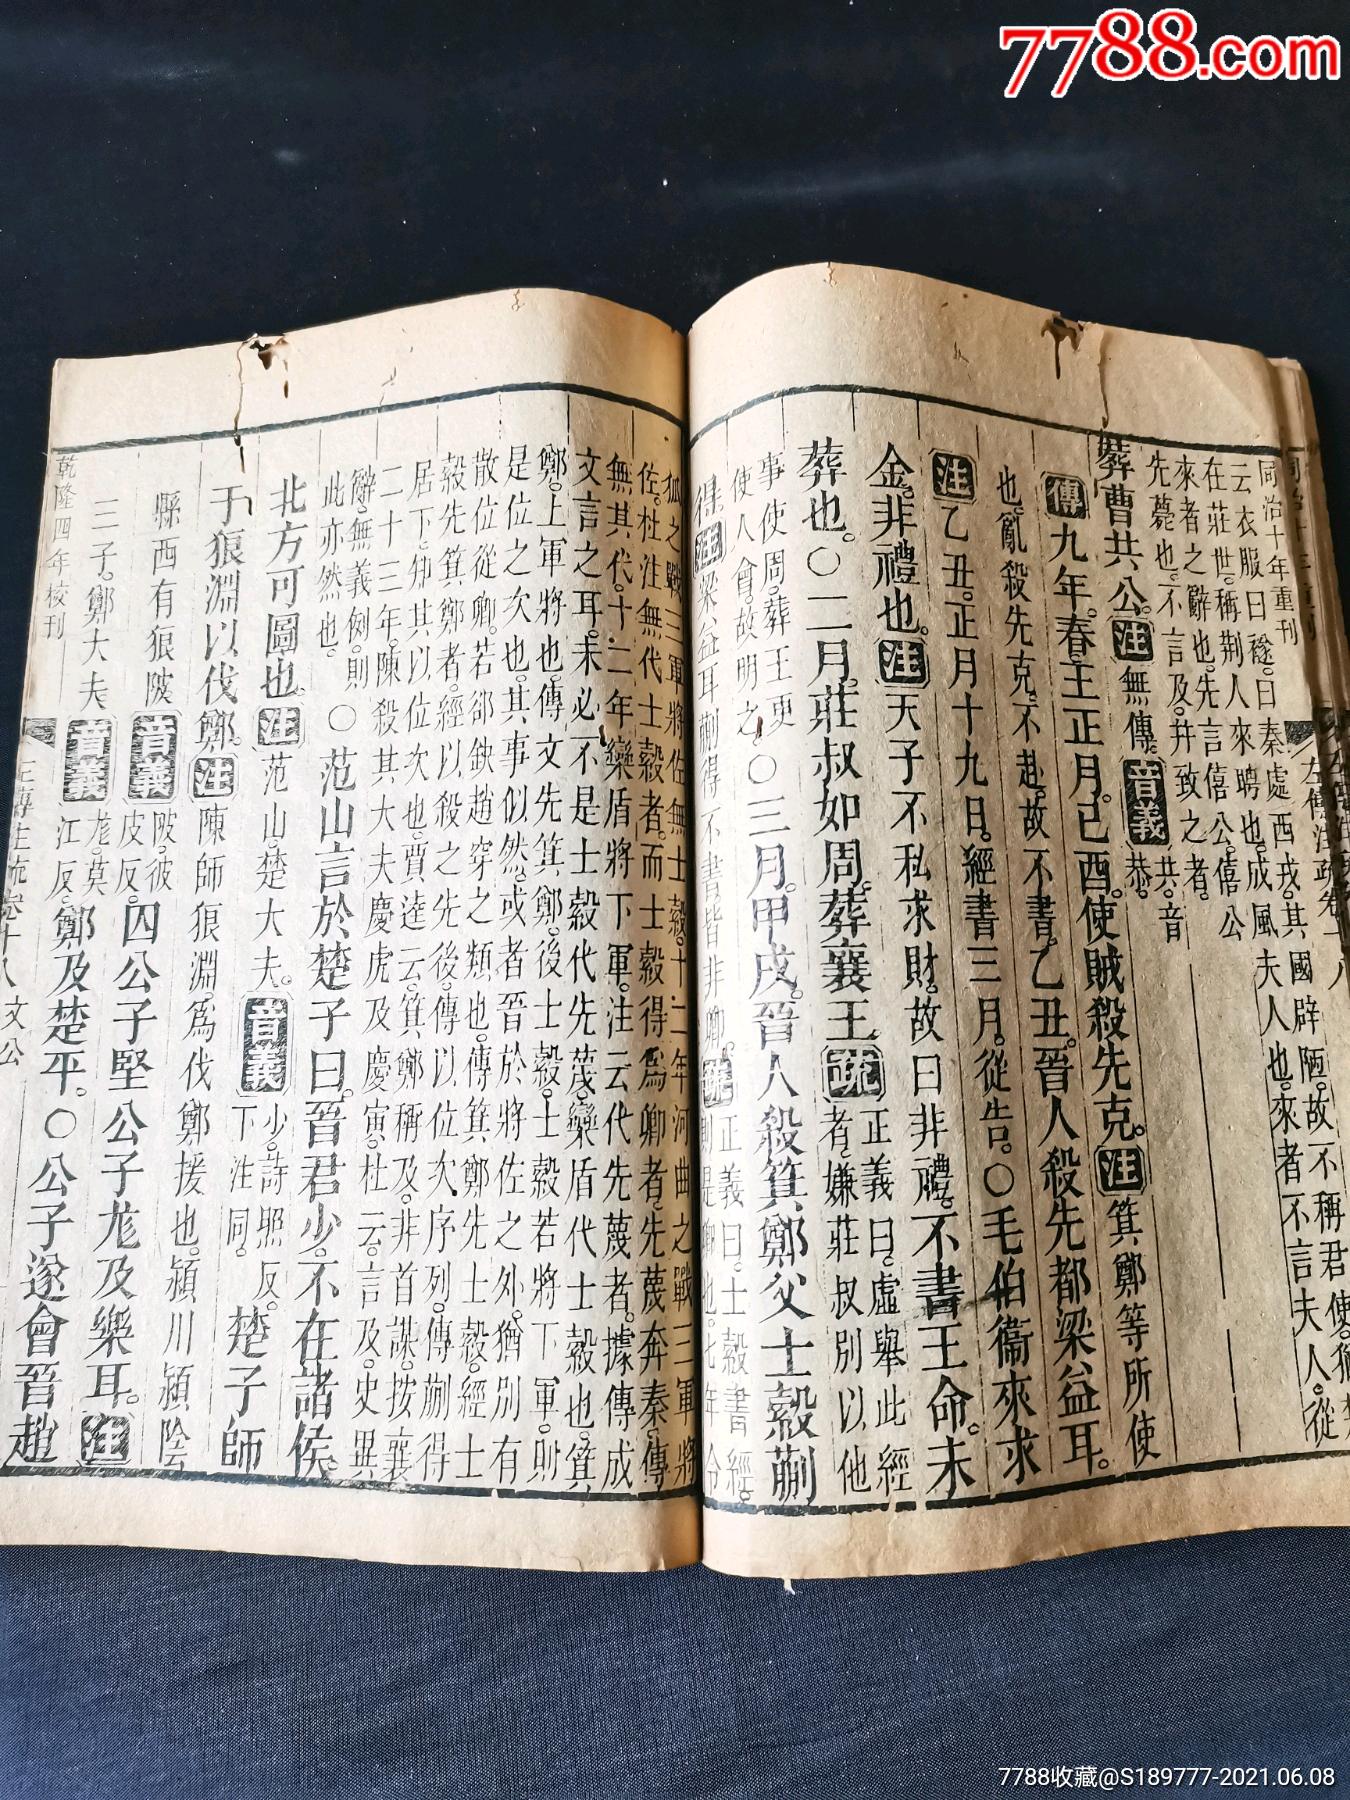 7788.com
同治十年重刊 左傳注疏卷十八
云衣服曰襚。曰秦處西戎。其國辟陋。故不稱君使。猶
在莊世。稱荊人來聘也。成風夫人也。來者不言夫人。從
來者之辭也。先言僖公。僖公
先薨也。不言及。并致之者。
葬曹共公。注無傳。音義共。音恭。
傳九年。春。王正月。己酉。使賊殺先克。注箕鄭等所使
也。亂殺先克。不赴。故不書。乙丑。晉人殺先都梁益耳。
注乙丑。正月十九日。經書三月。從告。〇毛伯衞來求
金。非禮也。注天子不私求財。故曰非禮。不書王命。未
葬也。〇二月。莊叔如周。葬襄王。疏正義曰。虛舉此經者。嫌莊叔別以他
事使周。葬王更使人會。故明之。〇三月。甲戌。晉人殺箕鄭父士縠蒯
得。注梁益耳蒯得不書。皆非卿。疏正義曰。士縠書經。則是卿也。七年令
狐之戰。三軍將佐無士縠。十二年河曲之戰。三軍將
佐。杜注無代士縠者。而士縠得爲卿者。先蔑奔秦。傳
無其代。十二年欒盾將下軍。注云代先蔑者。據傳成
文言之耳。未必不是士縠代先蔑。欒盾代士縠也。箕
鄭上軍將也。傳文先箕鄭。後士縠。士縠若將下軍。則
是位之次也。其事似然。或者晉於將佐之外。猶別有
散位從卿。若郤缺趙穿之類也。傳箕鄭先士縠。經士
縠先箕鄭者。經以殺之先後。傳以位次序列。傳蒯得
居下。知其以位次也。賈逵云。箕鄭稱及。非首謀。按襄
二十三年。陳殺其大夫慶虎及慶寅。杜云。言及。史異
辭。無義例。則此亦然也。〇范山言於楚子曰。晉君少。不在諸侯。
北方可圖也。注范山。楚大夫。音義少。詩照反。下注同。楚子師
于狼淵以伐鄭。注陳師狼淵。爲伐鄭援也。潁川潁陰
縣西有狼陂。音義陂。彼皮反。囚公子堅公子尨及樂耳。注
三子。鄭大夫。音義尨。莫江反。鄭及楚平。〇公子遂會晉趙
乾隆四年校刊 左傳注疏卷十八 文公
7788收藏@S189777-2021.06.08